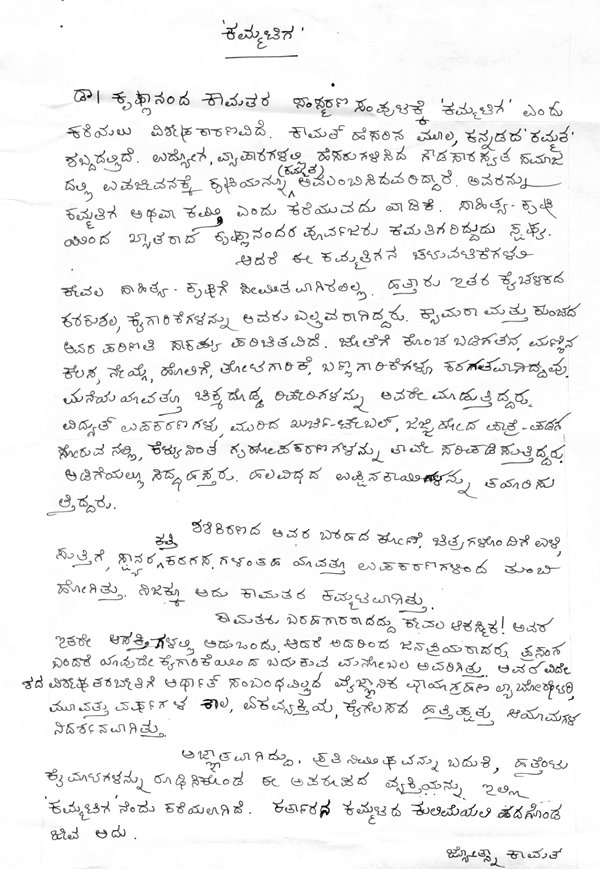 'ಕಮ್ಮಟಿಗ'
ಡಾ| ಕೃಷ್ಣಾನಂದ ಕಾಮತರ ಸಂಸ್ಮರಣ ಸಂಪುಟಕ್ಕೆ 'ಕಮ್ಮಟಿಗ' ಎಂದು
ಕರೆಯಲು ವಿಶೇಷ ಕಾರಣವಿದೆ. ಕಾಮತ್ ಹೆಸರಿನ ಮೂಲ, ಕನ್ನಡದ 'ಕಮ್ಮತ'
ಶಬ್ದದಲ್ಲಿದೆ. ಉದ್ಯೋಗ, ವ್ಯಾಪಾರಗಳಲ್ಲಿ ಹೆಸರುಗಳಿಸಿದ ಗೌಡಸಾರಸ್ವತ ಸಮಾಜ
ದಲ್ಲಿ ಉಪಜೀವನಕ್ಕೆ ಕೃಷಿಯನ್ನು (ಕಮ್ಮತ) ಅವಲಂಬಿಸಿದವರಿದ್ದಾರೆ. ಅವರನ್ನು
ಕಮ್ಮತಿಗ ಅಥವಾ ಕಮ್ತಿ ಎಂದು ಕರೆಯುವದು ವಾಡಿಕೆ. ಸಾಹಿತ್ಯ-ಕೃಷಿ
ಯಿಂದ ಖ್ಯಾತರಾದ ಕೃಷ್ಣಾನಂದರ ಪೂರ್ವಜರು ಕಮತಿಗರಿದ್ದುದು ಸ್ಪಷ್ಟ.
ಆದರೆ ಈ ಕಮ್ಮತಿಗನ ಚಟುವಟಿಕೆಗಳು
ಕೇವಲ ಸಾಹಿತ್ಯ-ಕೃಷಿಗೆ ಸೀಮಿತವಾಗಿರಲಿಲ್ಲ. ಹತ್ತಾರು ಇತರ ಕೈಚಳಕದ
ಕರಕುಶಲ, ಕೈಗಾರಿಕೆಗಳನ್ನು ಅವರು ಬಲ್ಲವರಾಗಿದ್ದರು. ಕ್ಯಾಮರಾ ಮತ್ತು ಕುಂಚದ
ಅವರ ಪರಿಣತಿ ಸಾಕಷ್ಟು ಪರಿಚಿತವಿದೆ. ಜೊತೆಗೆ ಕೊಂಚ ಬಡಿಗತನ, ಮಣ್ಣಿನ
ಕೆಲಸ, ನೇಯ್ಗೆ, ಹೊಲಿಗೆ, ತೋಟಗಾರಿಕೆ, ಬಣ್ಣಗಾರಿಕೆಗಳೂ ಕರಗತವಾಗಿದ್ದವು.
ಮನೆಯ ಯಾವತ್ತೂ ಚಿಕ್ಕದೊಡ್ಡ ರಿಪೇರಿಗಳನ್ನು ಅವರೇ ಮಾಡುತ್ತಿದ್ದರು.
ವಿದ್ಯುತ್ ಉಪಕರಣಗಳು, ಮುರಿದ ಖುರ್ಚಿ-ಟೇಬಲ್, ಜಜ್ಜಿಹೋದ ಪಾತ್ರೆ-ಪಡಗ
ಸೋರುವ ನಲ್ಲಿ, ಕೆಳ್ಯುನಿಂತ ಗೃಹೋಪಕರಣಗಳನ್ನು ತಾವೇ ಸರಿಪಡಿಸುತ್ತಿದ್ದರು.
ಅಡಿಗೆಯಲ್ಲೂ ಸಿದ್ಧಹಸ್ತರು. ಹಲವಿಧದ ಉಪ್ಪಿನಕಾಯಿಗಳನ್ನು ತಯಾರಿಸು
ತ್ತಿದ್ದರು.
ಶಶಿಕಿರಣದ ಅವರ ಬರಹದ ಕೋಣೆ, ಚಿತ್ರಗಳೊಂದಿಗೆ ಉಳಿ,
ಸುತ್ತಿಗೆ, ಕತ್ತಿ ಸ್ಪ್ಯಾನರ್, ಕರಗಸ, ಗಳಂತಹ ಯಾವತ್ತೂ ಉಪಕರಣಗಳಿಂದ ತುಂಬಿ
ಹೋಗಿತ್ತು. ನಿಜಕ್ಕೂ ಅದು ಕಾಮತರ ಕಮ್ಮಟವಾಗಿತ್ತು.
ಕಾಮತರು ಬರಹಗಾರರಾದದ್ದು ಕೇವಲ ಆಕಸ್ಮಿಕ! ಅವರ
ಇತರೇ ಆಸಕ್ತಿಗಳಲ್ಲಿ ಅದು ಒಂದು. ಆದರೆ ಅದರಿಂದ ಜನಪ್ರಿಯರಾದರು. ಪ್ರಸಂಗ
ಬಂದರೆ ಯಾವುದೇ ಕೈಗಾರಿಕೆಯಿಂದ ಬದುಕುವ ಮನೋಬಲ ಅವರಿಗಿತ್ತು. ಅವರ ವಿದೇ
ಶದ ವಿಶೇಷ ತರಬೇತಿಗೆ ಅರ್ಥಾತ್ ಸಂಬಂಧವಿಲ್ಲದ ವೈಜ್ಞಾನಿಕ ಛಾಯಾಗ್ರಹಣ ಲ್ಯಾಬೋರೇಟರಿ,
ಮೂವತ್ತು ವರ್ಷಗಳ ಕಾಲ, ಏಕವ್ಯಕ್ತಿಯ, ಕೈಗೆಲಸದ ಹತ್ತಿಪ್ಪತ್ತು ಆಯಾಮಗಳ
ನಿದರ್ಶನವಾಗಿತ್ತು.
ಅಜ್ಞಾತವಾಗಿದ್ದು, ಪ್ರತಿನಿಮಿಷವನ್ನು ಬದುಕಿ, ಹತ್ತೆಂಟು
ಕೈಮಾಟಗಳನ್ನು ರೂಢಿಸಿಕೊಂಡ ಈ ಅಪರೂಪದ ವ್ಯಕ್ತಿಯನ್ನು ಇಲ್ಲಿ
'ಕಮ್ಮಟಿಗ'ನೆಂದು ಕರೆಯಲಾಗಿದೆ. ಕರ್ತಾರನ ಕಮ್ಮಟದ ಕುಲಿಮೆಯಲಿ ಹದಗೊಂಡ
ಜೀವ ಅದು.
ಜ್ಯೋತ್ಸ್ನಾ ಕಾಮತ್